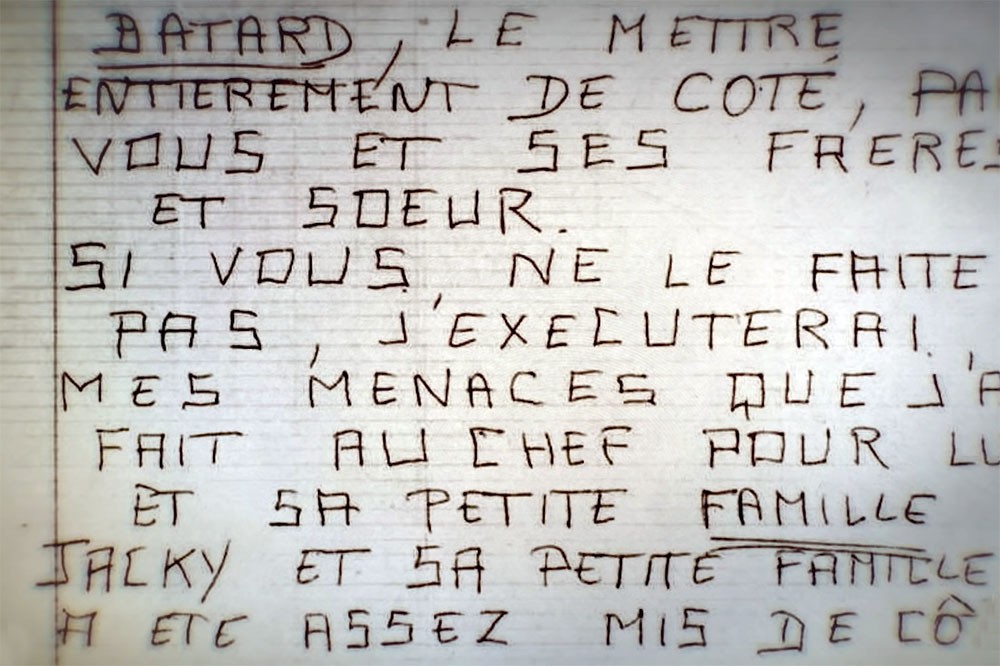 BATARD, LE METTRE
ENTIEREMENT DE COTÉ, PA
VOUS ET SES FRERES
ET SOEUR.
SI VOUS NE LE FAITE
PAS, J'EXECUTERAI
MES MENACES QUE J'A
FAIT AU CHEF POUR LU
ET SA PETITE FAMILLE
JACKY ET SA PETITE FAMILLE
A ETE ASSEZ MIS DE CÔ